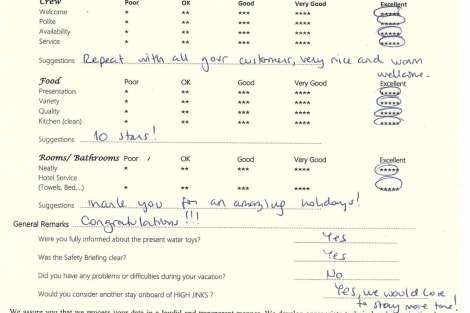 Crew Poor OK Good Very Good Excellent
Welcome * ** *** **** *****
Polite * ** *** **** *****
Availability * ** *** **** *****
Service * ** *** **** *****
Suggestions Repeat with all your customers, very nice and warm
wellcome.
Food Poor OK Good Very Good Excellent
Presentation * ** *** **** *****
Variety * ** *** **** *****
Quality * ** *** **** *****
Kitchen (clean) * ** *** **** *****
Suggestions 10 stars!
Rooms/ Bathrooms Poor OK Good Very Good Excellent
Neatly * ** *** **** *****
Hotel Service
(Towels, Bed,...) * ** *** **** *****
Suggestions thank you for an amazing holidays!
General Remarks Congratulations!!!
Were you fully informed about the present water toys? Yes
Was the Safety Briefing clear? Yes
Did you have any problems or difficulties during your vacation? No
Would you consider another stay onboard of HIGH JINKS ? Yes, we would love
to stay more time!
We assure you that we process your data in a lawful and transparent manner. We